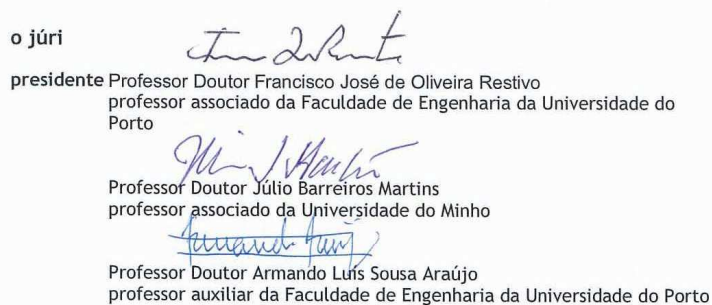 o júri
presidente Professor Doutor Francisco José de Oliveira Restivo
professor associado da Faculdade de Engenharia da Universidade do
Porto
Professor Doutor Júlio Barreiros Martins
professor associado da Universidade do Minho
Professor Doutor Armando Luís Sousa Araújo
professor auxiliar da Faculdade de Engenharia da Universidade do Porto